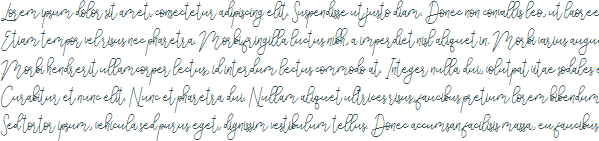 Lorem ipsum dolor sit amet, consectetur adipiscing elit. Suspendisse ut justo diam. Donec non convallis leo, ut laoree
Etiam tempor vel risus nec pharetra. Morbi fringilla luctus nibh, a imperdiet nisl aliquet in. Morbi varius augu
Morbi hendrerit ullamcorper lectus, id interdum lectus commodo at. Integer nulla dui, volutpat vitae sodales e
Curabitur et nunc elit. Nunc et pharetra dui. Nullam aliquet ultrices risus, faucibus pretium lorem bibendum
Sed tortor ipsum, vehicula sed purus eget, dignissim vestibulum tellus. Donec accumsan facilisis massa, eu faucibus